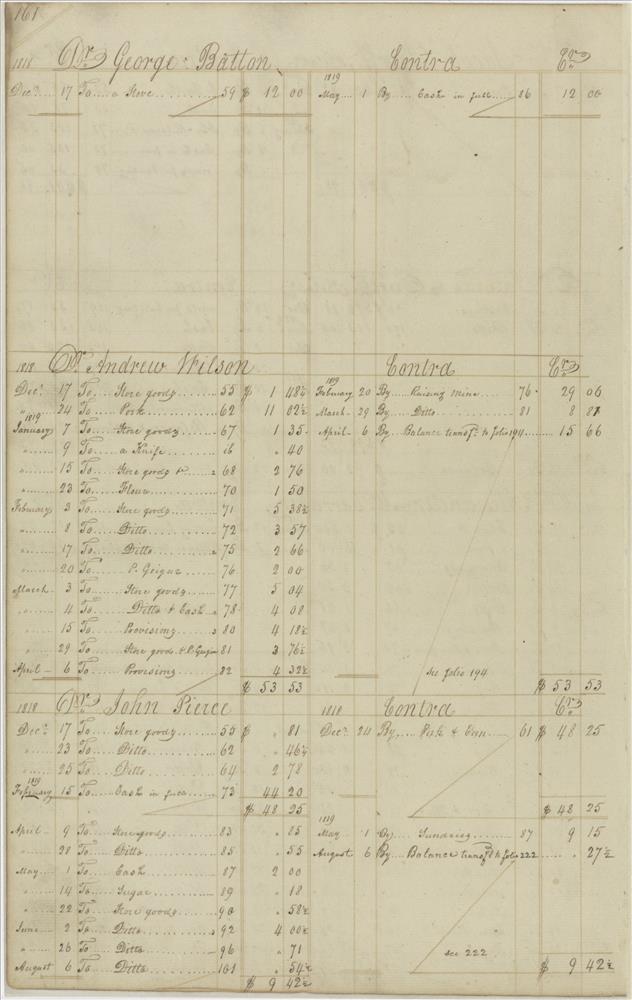 161
1818 Dr. George Batton Contra Cr.
Decr. 17 To a Stove 59 $ 12 00 1819 May 1 By Cash in full 86 12 00
1818 Dr. Andrew Wilson Contra Cr.
Decr. 17 To Store goods 55 $ 1 48½ 1819 February 20 By Raising mine 76 29 06
" 24 To Pork 62 11 02½ March 29 By Ditto 81 8 81
1819 January 7 To Store goods 67 1 35 April 6 By Balance transfd. to folio 194 15 66
" 9 To a Knife " 40
" 15 To Store goods & 68 2 76
" 23 To Flour 70 1 50
February 3 To Store goods 71 5 38½
" 8 To Ditto 72 3 57
" 17 To Ditto 75 2 66
" 20 To P. Geiger 76 2 00
March 3 To Store goods 77 5 04
" 4 To Ditto & Cash 78 4 08
" 15 To Provisions 80 4 18½
" 29 To Store goods & P. Geiger 81 3 76½
April 6 To Provisions 82 4 32½ see folio 194
$ 53 53 $ 53 53
1818 Dr. John Pierce 1818 Contra Cr.
Decr. 17 To Store goods 55 $ " 81 Decr. 24 By Pork & 61 $ 48 25
" 23 To Ditto 62 " 46½
" 25 To Ditto 64 2 78
1819 February 15 To Cash in full 73 44 20
$ 48 25 $ 48 25
April 9 To Store goods 83 " 85 1819 May 1 By Sundries 87 9 15
" 28 To Ditto 85 " 55 August 6 By Balance transfd. to folio 222 " 27½
May 1 To Cash 87 2 00
" 14 To Sugar 89 " 18
" 22 To Store goods 90 " 58½
June 2 To Ditto 92 4 00½
" 26 To Ditto 96 " 71 see 222
August 6 To Ditto 101 " 54½ $ 9 42½
$ 9 42½